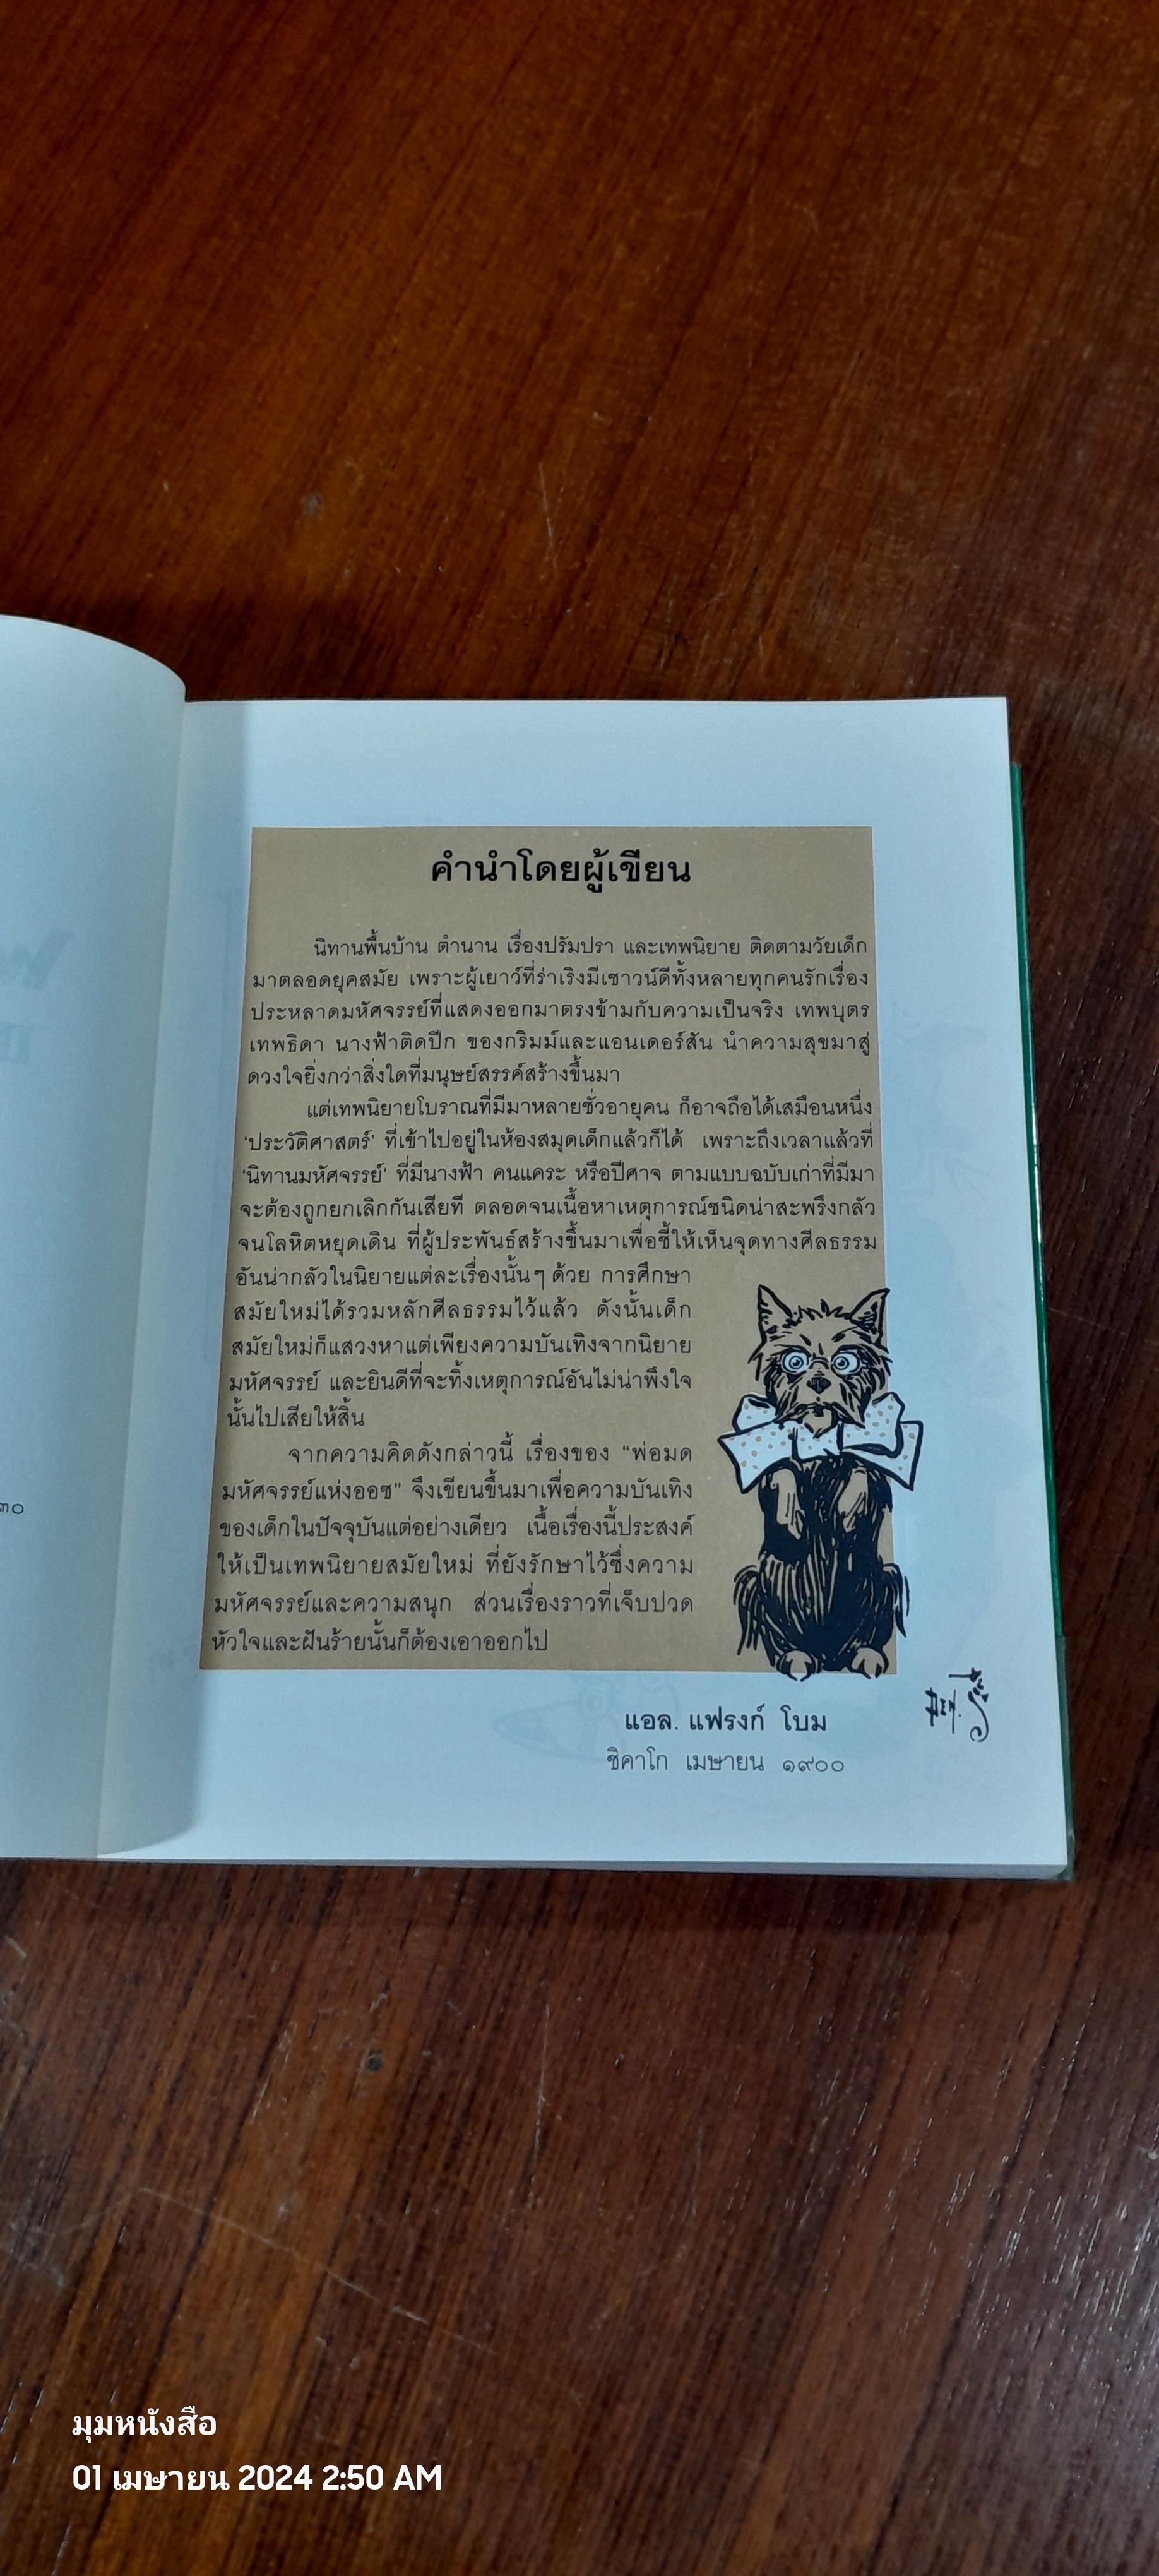 คำนำโดยผู้เขียน
นิทานพื้นบ้าน ตำนาน เรื่องปรัมปรา และเทพนิยาย ติดตามวัยเด็ก
มาตลอดยุคสมัย เพราะผู้เยาว์ที่ร่าเริงมีเชาวน์ดีทั้งหลายทุกคนรักเรื่อง
ประหลาดมหัศจรรย์ที่แสดงออกมาตรงข้ามกับความเป็นจริง เทพบุตร
เทพธิดา นางฟ้าติดปีก ของกริมม์และแอนเดอร์สัน นำความสุขมาสู่
ดวงใจยิ่งกว่าสิ่งใดที่มนุษย์สรรค์สร้างขึ้นมา
แต่เทพนิยายโบราณที่มีมาหลายชั่วอายุคน ก็อาจถือได้เสมือนหนึ่ง
‘ประวัติศาสตร์’ ที่เข้าไปอยู่ในห้องสมุดเด็กแล้วก็ได้ เพราะถึงเวลาแล้วที่
‘นิทานมหัศจรรย์’ ที่มีนางฟ้า คนแคระ หรือปีศาจ ตามแบบฉบับเก่าที่มีมา
จะต้องถูกยกเลิกกันเสียที ตลอดจนเนื้อหาเหตุการณ์ชนิดน่าสะพรึงกลัว
จนโลหิตหยุดเดิน ที่ผู้ประพันธ์สร้างขึ้นมาเพื่อชี้ให้เห็นจุดทางศีลธรรม
อันน่ากลัวในนิยายแต่ละเรื่องนั้นๆ ด้วย การศึกษา
สมัยใหม่ได้รวมหลักศีลธรรมไว้แล้ว ดังนั้นเด็ก
สมัยใหม่ก็แสวงหาแต่เพียงความบันเทิงจากนิยาย
มหัศจรรย์ และยินดีที่จะทิ้งเหตุการณ์อันไม่น่าพึงใจ
นั้นไปเสียให้สิ้น
จากความคิดดังกล่าวนี้ เรื่องของ “พ่อมด
มหัศจรรย์แห่งออซ” จึงเขียนขึ้นมาเพื่อความบันเทิง
ของเด็กในปัจจุบันแต่อย่างเดียว เนื้อเรื่องนี้ประสงค์
ให้เป็นเทพนิยายสมัยใหม่ ที่ยังรักษาไว้ซึ่งความ
มหัศจรรย์และความสนุก ส่วนเรื่องราวที่เจ็บปวด
หัวใจและฝันร้ายนั้นก็ต้องเอาออกไป
แอล. แฟรงก์ โบม
ชิคาโก เมษายน ๑๙๐๐
๓๐
มุมหนังสือ
01 เมษายน 2024 2:50 AM